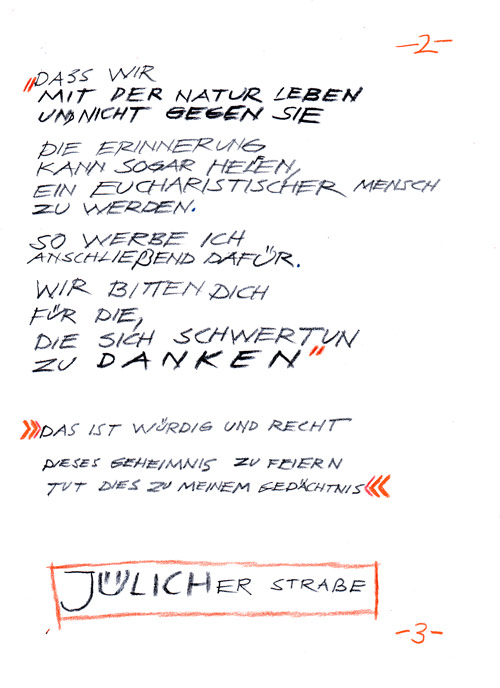 -2-
"DASS WIR
MIT DER NATUR LEBEN
UND NICHT GEGEN SIE
DIE ERINNERUNG
KANN SOGAR HELFEN,
EIN EUCHARISTISCHER MENSCH
ZU WERDEN.
SO WERBE ICH
ANSCHLIEßEND DAFÜR.
WIR BITTEN DICH
FÜR DIE,
DIE SICH SCHWERTUN
ZU DANKEN"
»»DAS IST WÜRDIG UND RECHT
DIESES GEHEIMNIS ZU FEIERN
TUT DIES ZU MEINEM GEDÄCHTNIS««
JÜLICHER STRAßE
-3-